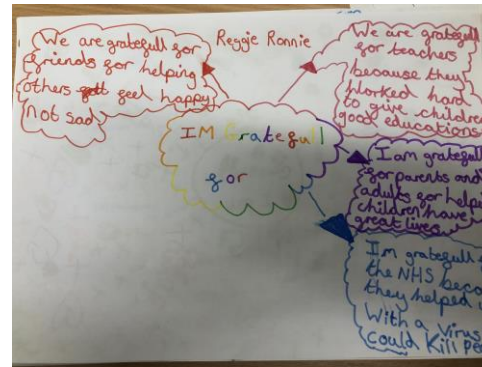 We are gratefull for
friends for helping
others feel happy
not sad
Reggie Ronnie
We are gratefull
for teachers
because they
Worked hard
to give children
good educations
IM Gratefull
for
I am gratefull
for parents and
adults for helping
children have
great lives
Im gratefull
the NHS
they helped
With a virus
could Kill